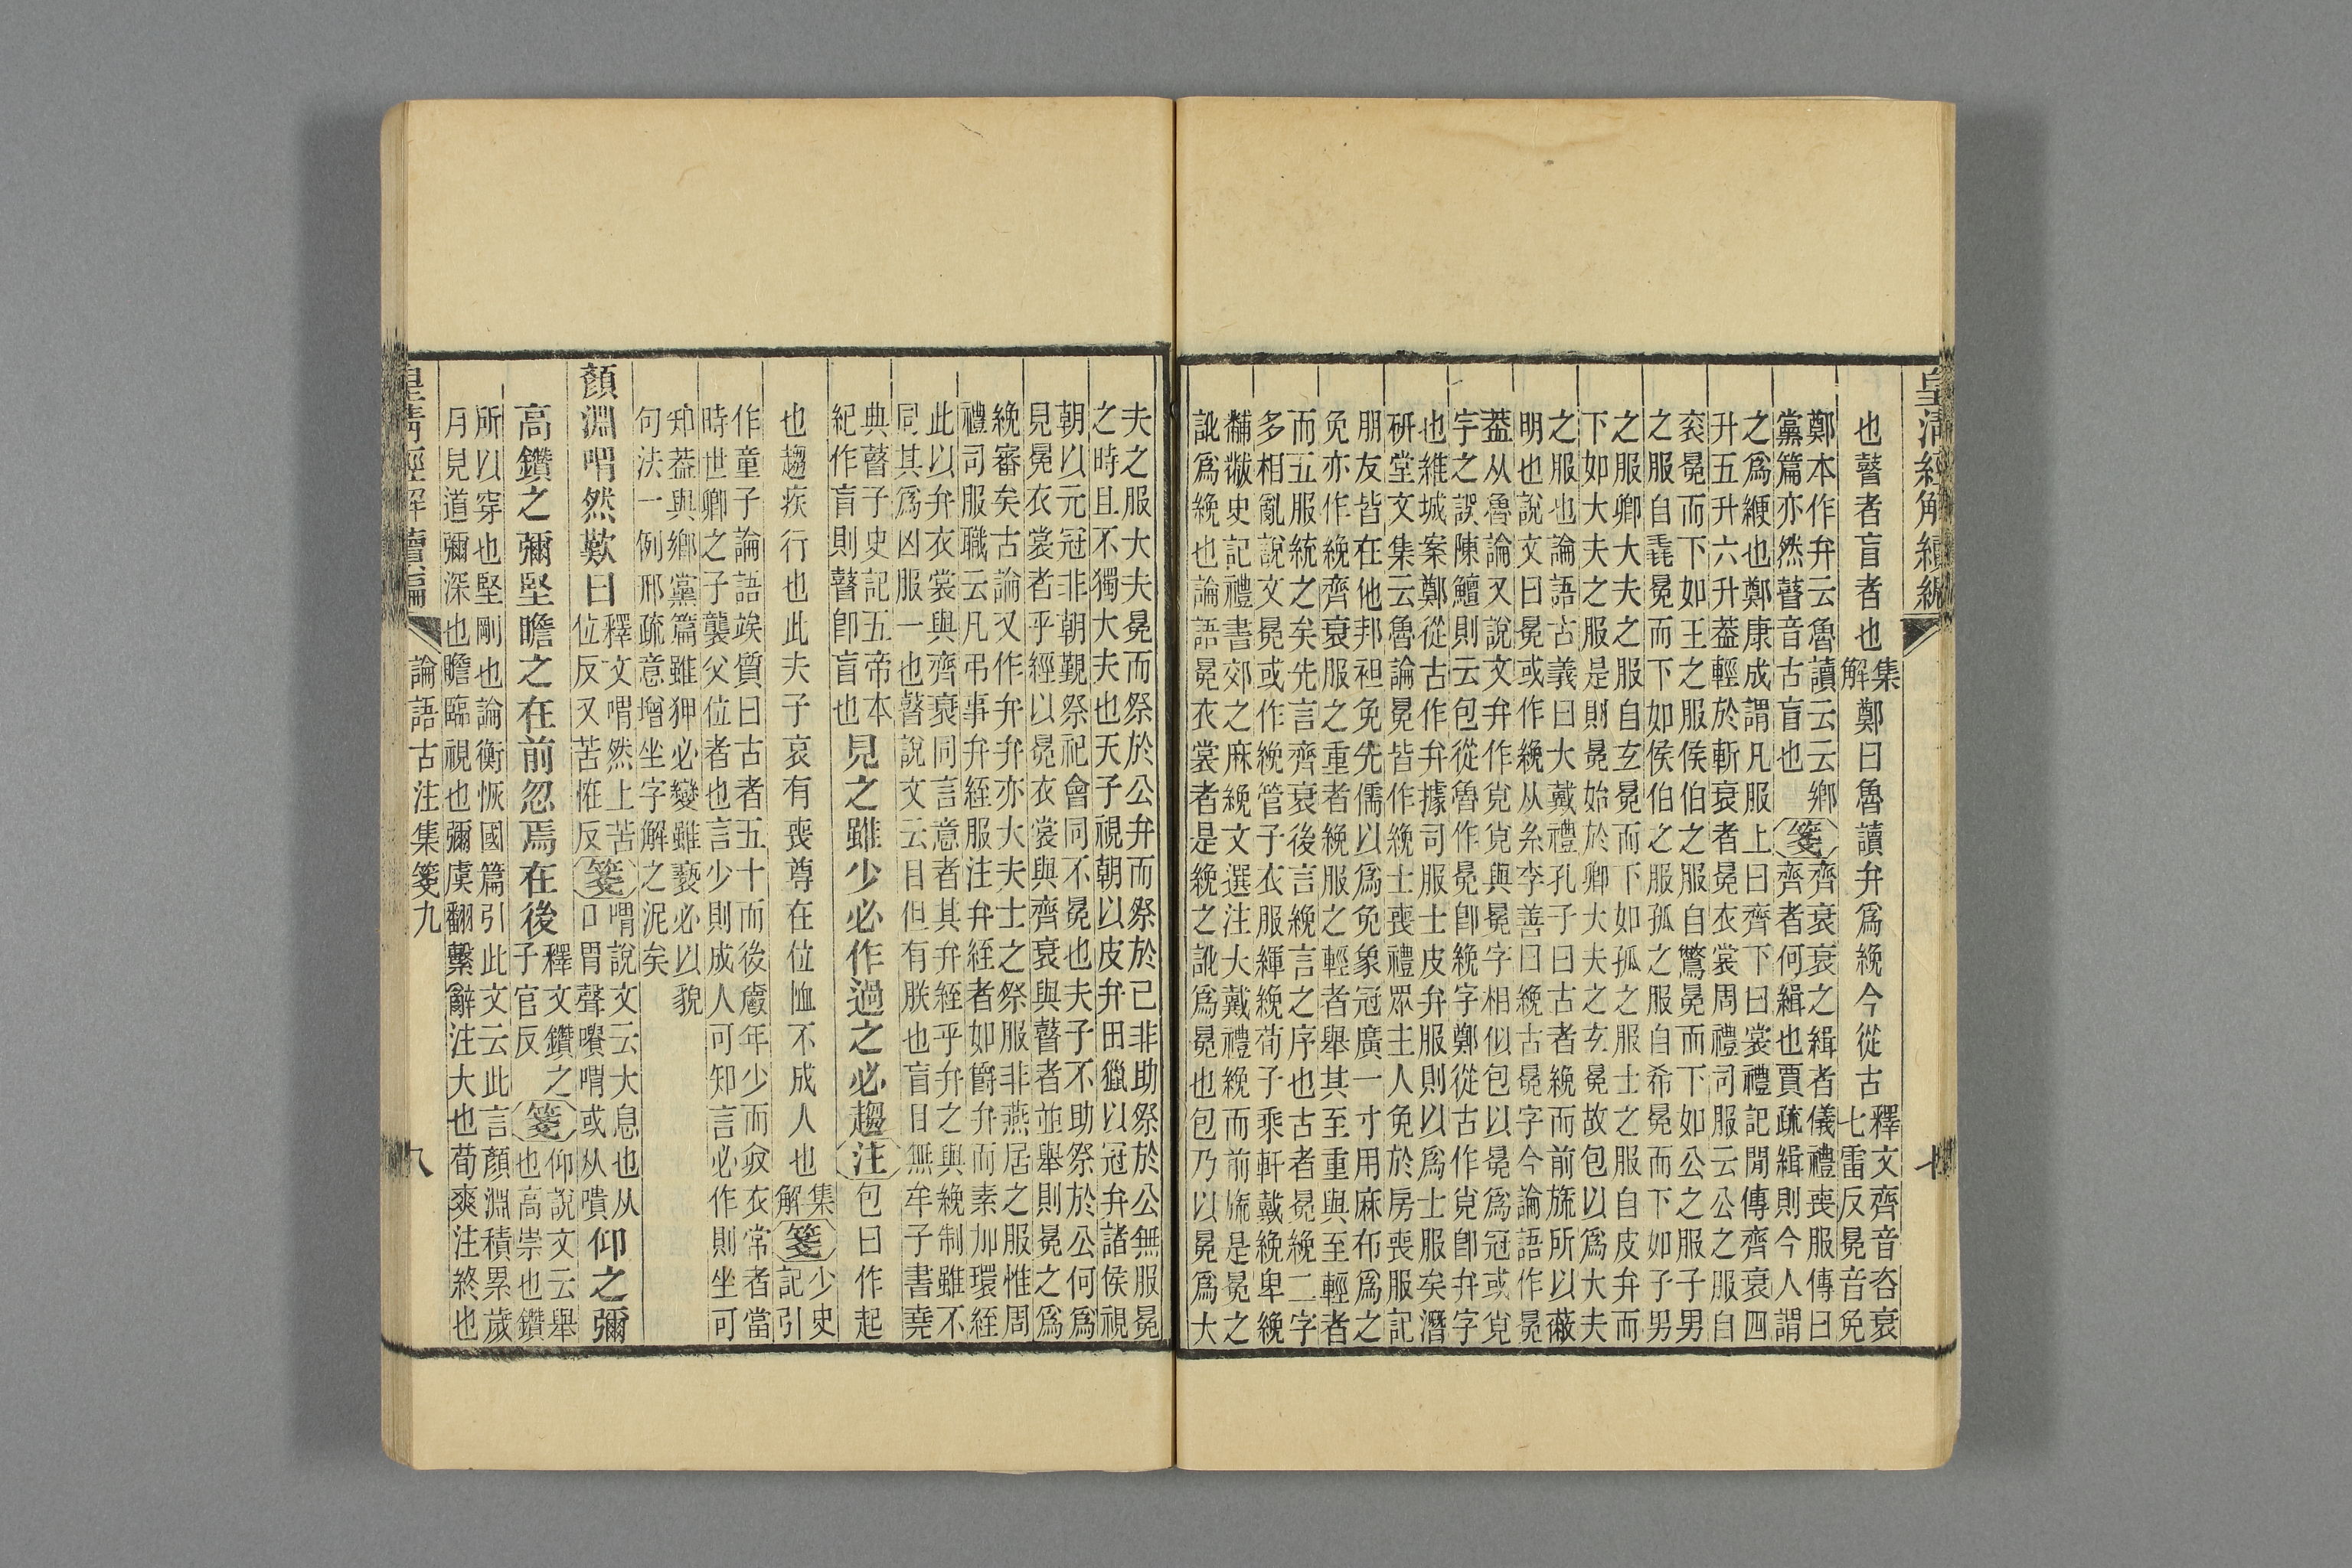 皇清經解續編
也瞽者盲者也集
解鄭曰魯讀弁爲絻今從古釋文齊音咨衰
七雷反冕音免
鄭本作弁云魯讀云云鄉
黨篇亦然瞽音古盲也
箋齊衰衰之緝者儀禮喪服傳曰
齊者何緝也賈疏緝則今人謂
之爲緶也鄭康成謂凡服上曰齊下曰裳禮記閒傳齊衰四
升五升六升葢輕於斬衰者冕衣裳周禮司服云公之服自
袞冕而下如王之服侯伯之服自鷩冕而下如公之服子男
之服自毳冕而下如侯伯之服孤之服自希冕而下如子男
之服卿大夫之服自玄冕而下如孤之服士之服自皮弁而
下如大夫之服是則冕始於卿大夫之玄冕故包以爲大夫
之服也論語古義曰大戴禮孔子曰古者絻而前旒所以蔽
明也說文曰冕或作絻从糸李善曰絻古冕字今論語作冕
葢从魯論又說文弁作覍覍與冕字相似包以冕爲冠或覍
字之誤陳鱣則云包從魯作冕卽絻字鄭從古作覍卽弁字
也維城案鄭從古作弁據司服士皮弁服則以爲士服矣潛
研堂文集云魯論冕皆作絻士喪禮眾主人免於房喪服記
朋友皆在他邦袒免先儒以爲免象冠廣一寸用麻布爲之
免亦作絻齊衰服之重者絻服之輕者舉其至重與至輕者
而五服統之矣先言齊衰後言絻言之序也古者冕絻二字
多相亂說文冕或作絻管子衣服緷絻荀子乘軒戴絻卑絻
黼黻史記禮書郊之麻絻文選注大戴禮絻而前旒是冕之
訛爲絻也論語冕衣裳者是絻之訛爲冕也包乃以冕爲大
夫之服大夫冕而祭於公弁而祭於己非助祭於公無服冕
之時且不獨大夫也天子視朝以皮弁田獵以冠弁諸侯視
朝以元冠非朝覲祭祀會同不冕也夫子不助祭於公何爲
見冕衣裳者乎經以冕衣裳與齊衰與瞽者並舉則冕之爲
絻審矣古論又作弁弁亦大夫士之祭服非燕居之服惟周
禮司服職云凡弔事弁絰服注弁絰者如爵弁而素加環絰
此以弁衣裳與齊衰同言意者其弁絰乎弁之與絻制雖不
同其爲凶服一也瞽說文云目但有朕也盲目無牟子書堯
典瞽子史記五帝本
紀作盲則瞽卽盲也
見之雖少必作過之必趨注包曰作起
也趨疾行也此夫子哀有喪尊在位恤不成人也集
解
箋少史
記引
作童子論語竢質曰古者五十而後廢年少而㚁衣常者當
時世卿之子襲父位者也言少則成人可知言必作則坐可
知葢與鄉黨篇雖狎必變雖褻必以貌
句法一例邢疏意增坐字解之泥矣
顏淵喟然歎曰釋文喟然上苦
位反又苦怪反
箋喟說文云大息也从
口胃聲嘳喟或从嘳
仰之彌
高鑽之彌堅瞻之在前忽焉在後釋文鑽之
子官反
箋仰說文云舉
也高崇也鑽
所以穿也堅剛也論衡恢國篇引此文云此言顏淵積累歲
月見道彌深也瞻臨視也彌虞翻繫辭注大也荀爽注終也
皇清經解續編
論語古注集箋九